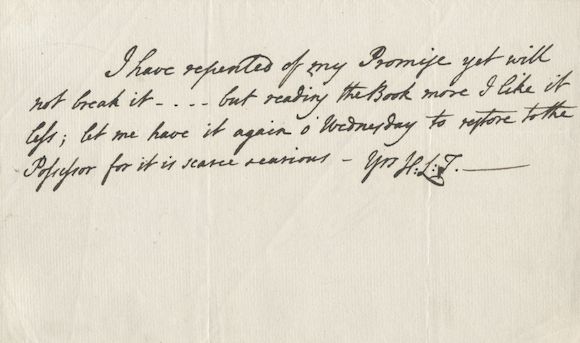 I have repented of my Promise yet will
not break it - . . . - but reading the Book more I like it
less; let me have it again o' Wednesday to restore to the
Possessor for it is scarce &
- Yrs H:L:T.